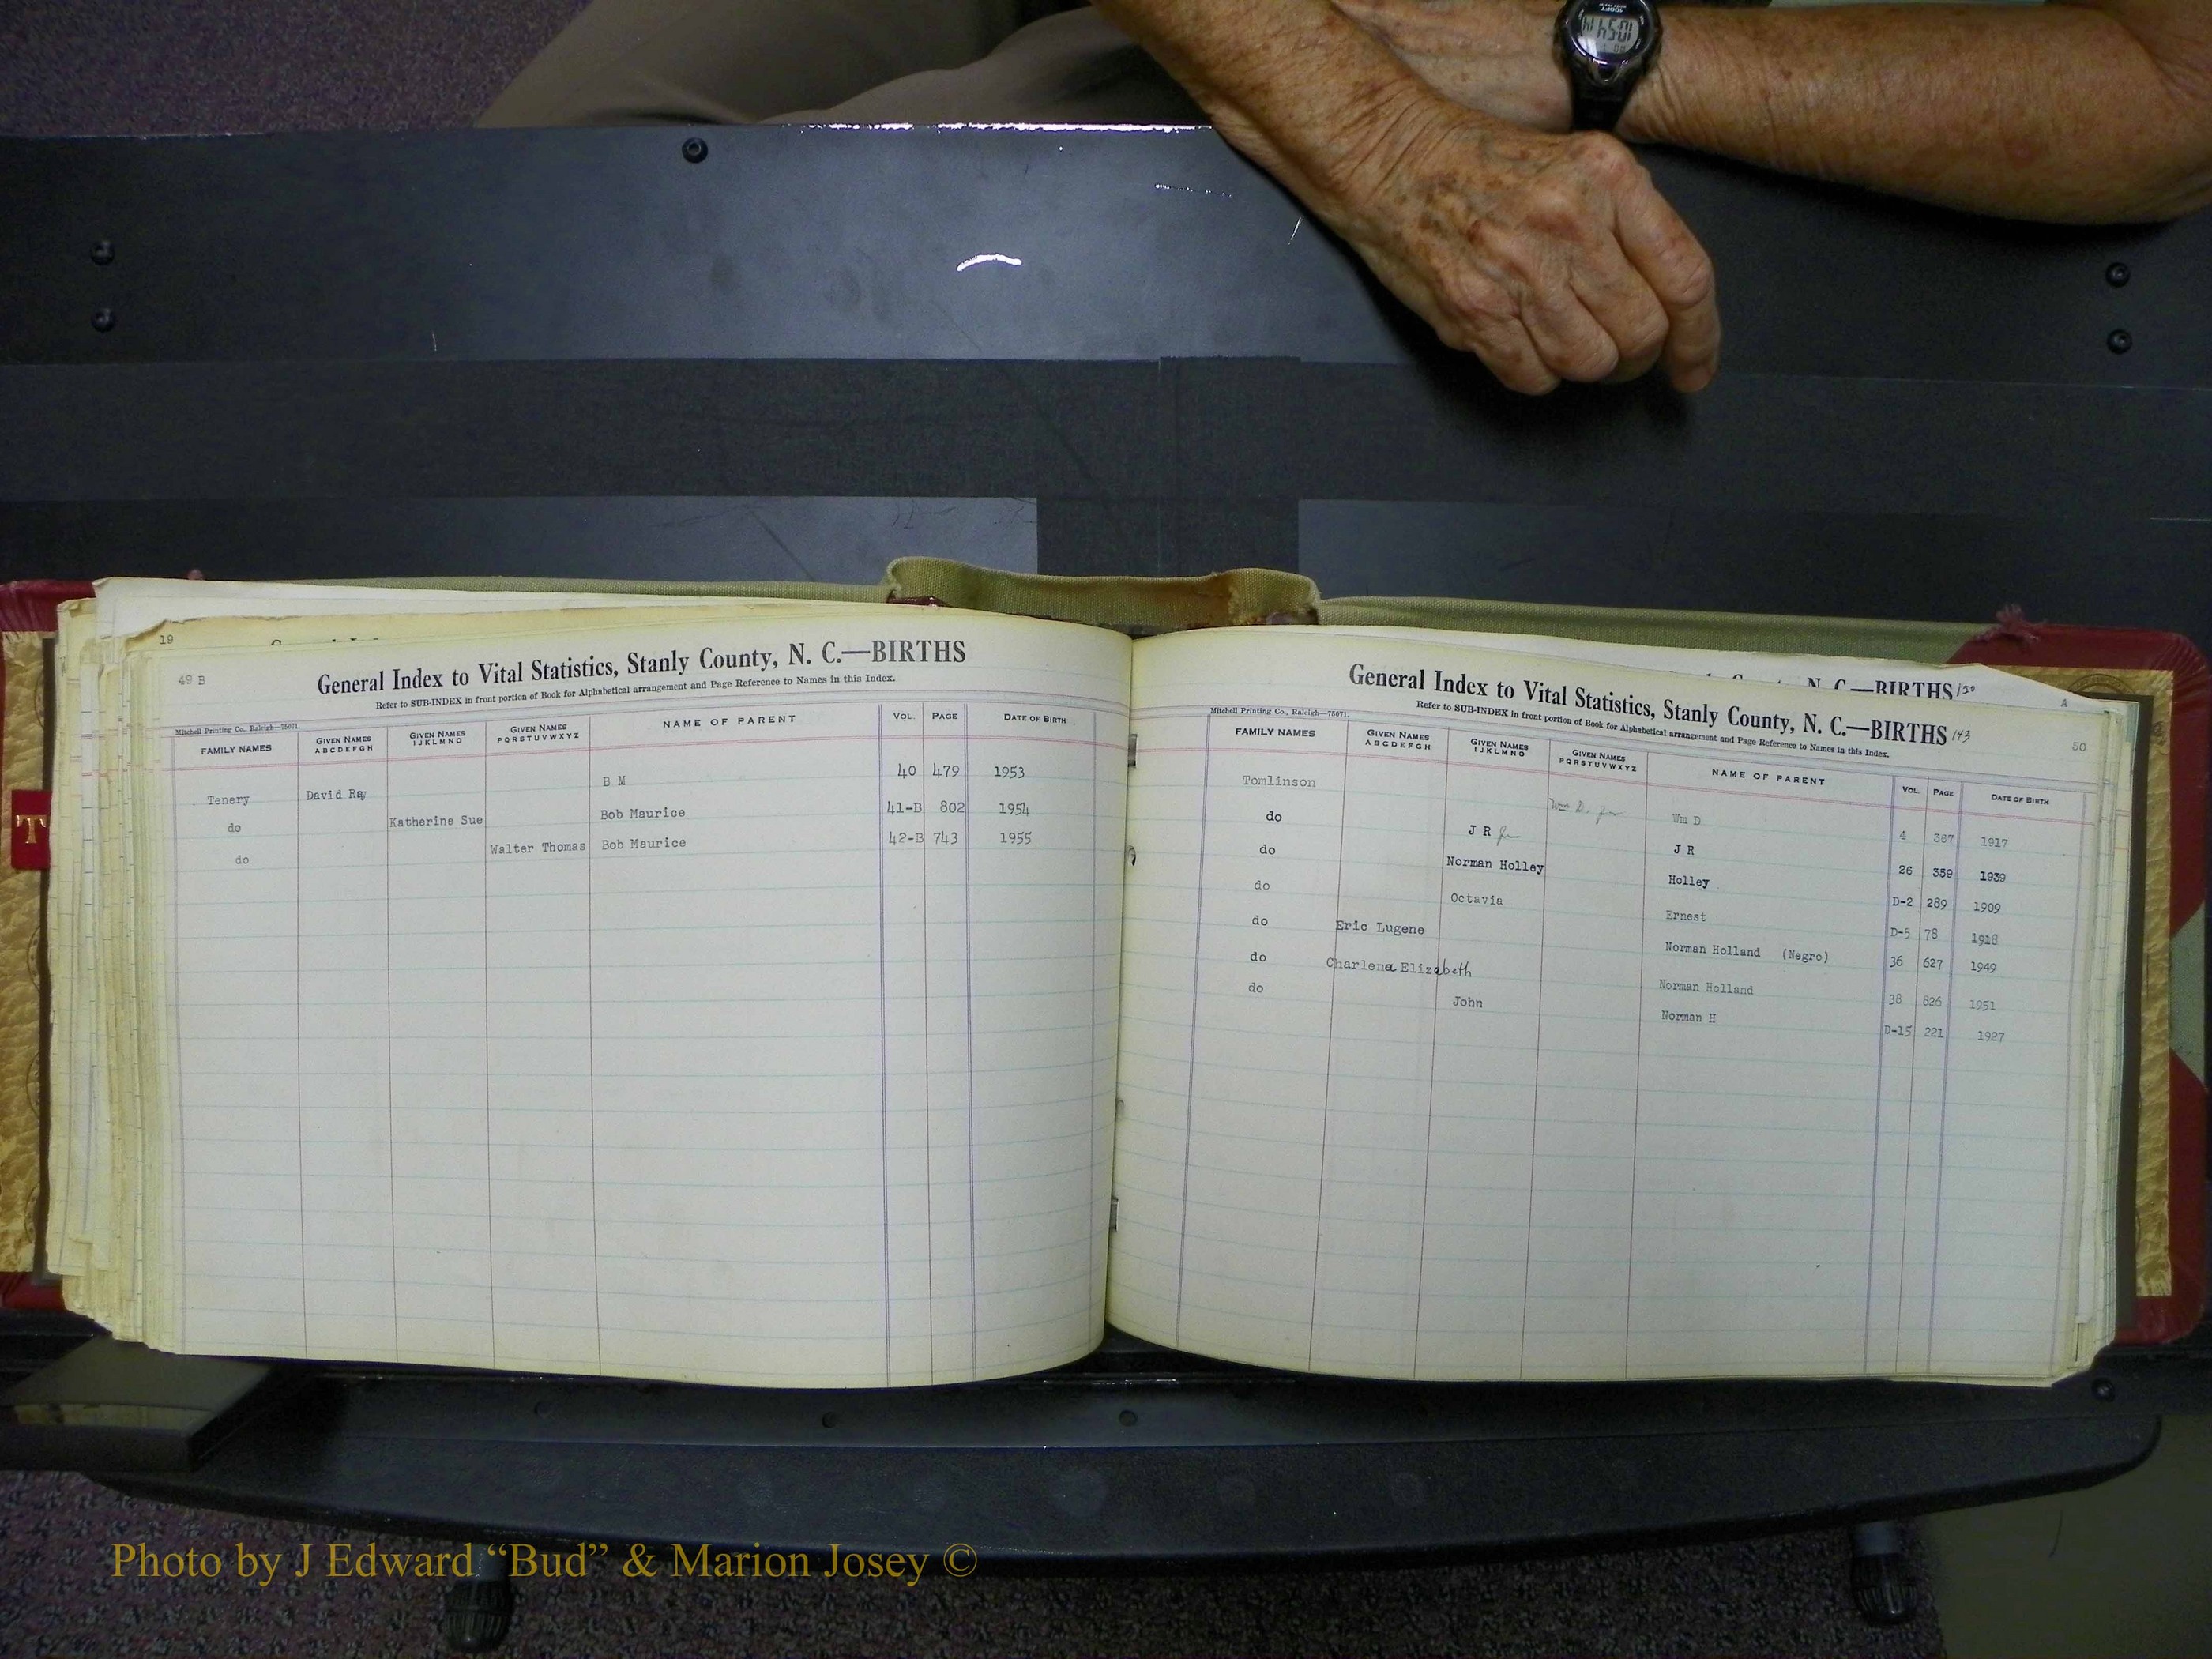 19
49 B
General Index to Vital Statistics, Stanly County, N. C.—BIRTHS
Refer to SUB-INDEX in front portion of Book for Alphabetical arrangement and Page Reference to Names in this Index.
Mitchell Printing Co., Raleigh—75071.
FAMILY NAMES GIVEN NAMES ABCDEFGH GIVEN NAMES IJKLMNO GIVEN NAMES PQRSTUVWXYZ NAME OF PARENT VOL. PAGE DATE OF BIRTH
Tenery David Ray B M 40 479 1953
do Katherine Sue Bob Maurice 41-B 802 1954
do Walter Thomas Bob Maurice 42-B 743 1955
T
N. C.—BIRTHS 120
A
General Index to Vital Statistics, Stanly County, N. C.—BIRTHS 143
50
Refer to SUB-INDEX in front portion of Book for Alphabetical arrangement and Page Reference to Names in this Index.
Mitchell Printing Co., Raleigh—75071.
FAMILY NAMES GIVEN NAMES ABCDEFGH GIVEN NAMES IJKLMNO GIVEN NAMES PQRSTUVWXYZ NAME OF PARENT VOL. PAGE DATE OF BIRTH
Tomlinson Wm D. Jr Wm D 4 367 1917
do J R Jr J R 26 359 1939
do Norman Holley Holley D-2 289 1909
do Octavia Ernest D-5 78 1918
do Eric Lugene Norman Holland (Negro) 36 627 1949
do Charlena Elizabeth Norman Holland 38 826 1951
do John Norman H D-15 221 1927
10:54
Photo by J Edward “Bud” & Marion Josey ©